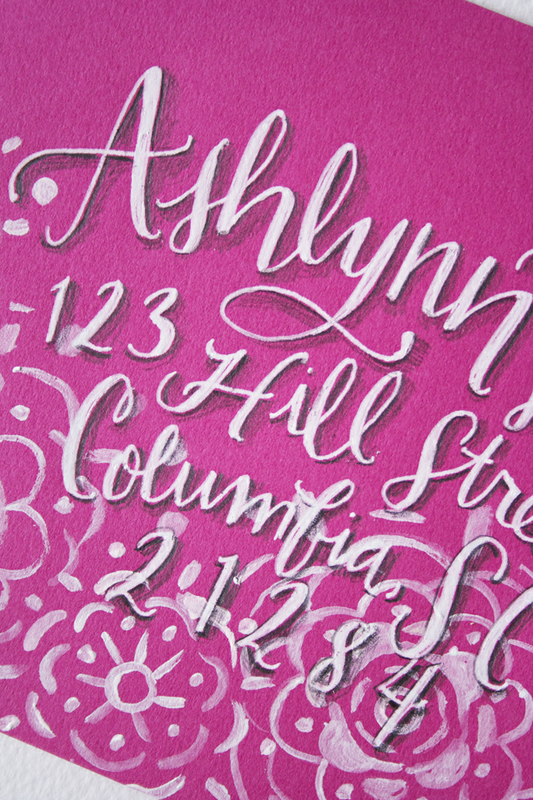 Ashlynn
123 Hill Stre
Columbia, SC
21284